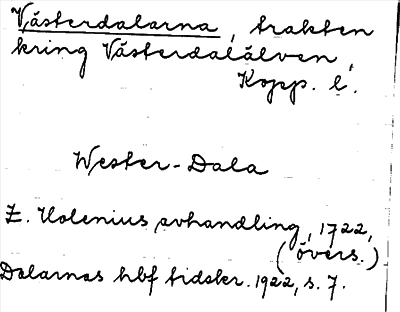 Västerdalarna, trakten
kring Västerdalälven,
Kopp. l.
Wester-Dala
E. Holenius avhandling, 1722,
(övers.)
Dalarnas hbf tidskr. 1922, s. 7.